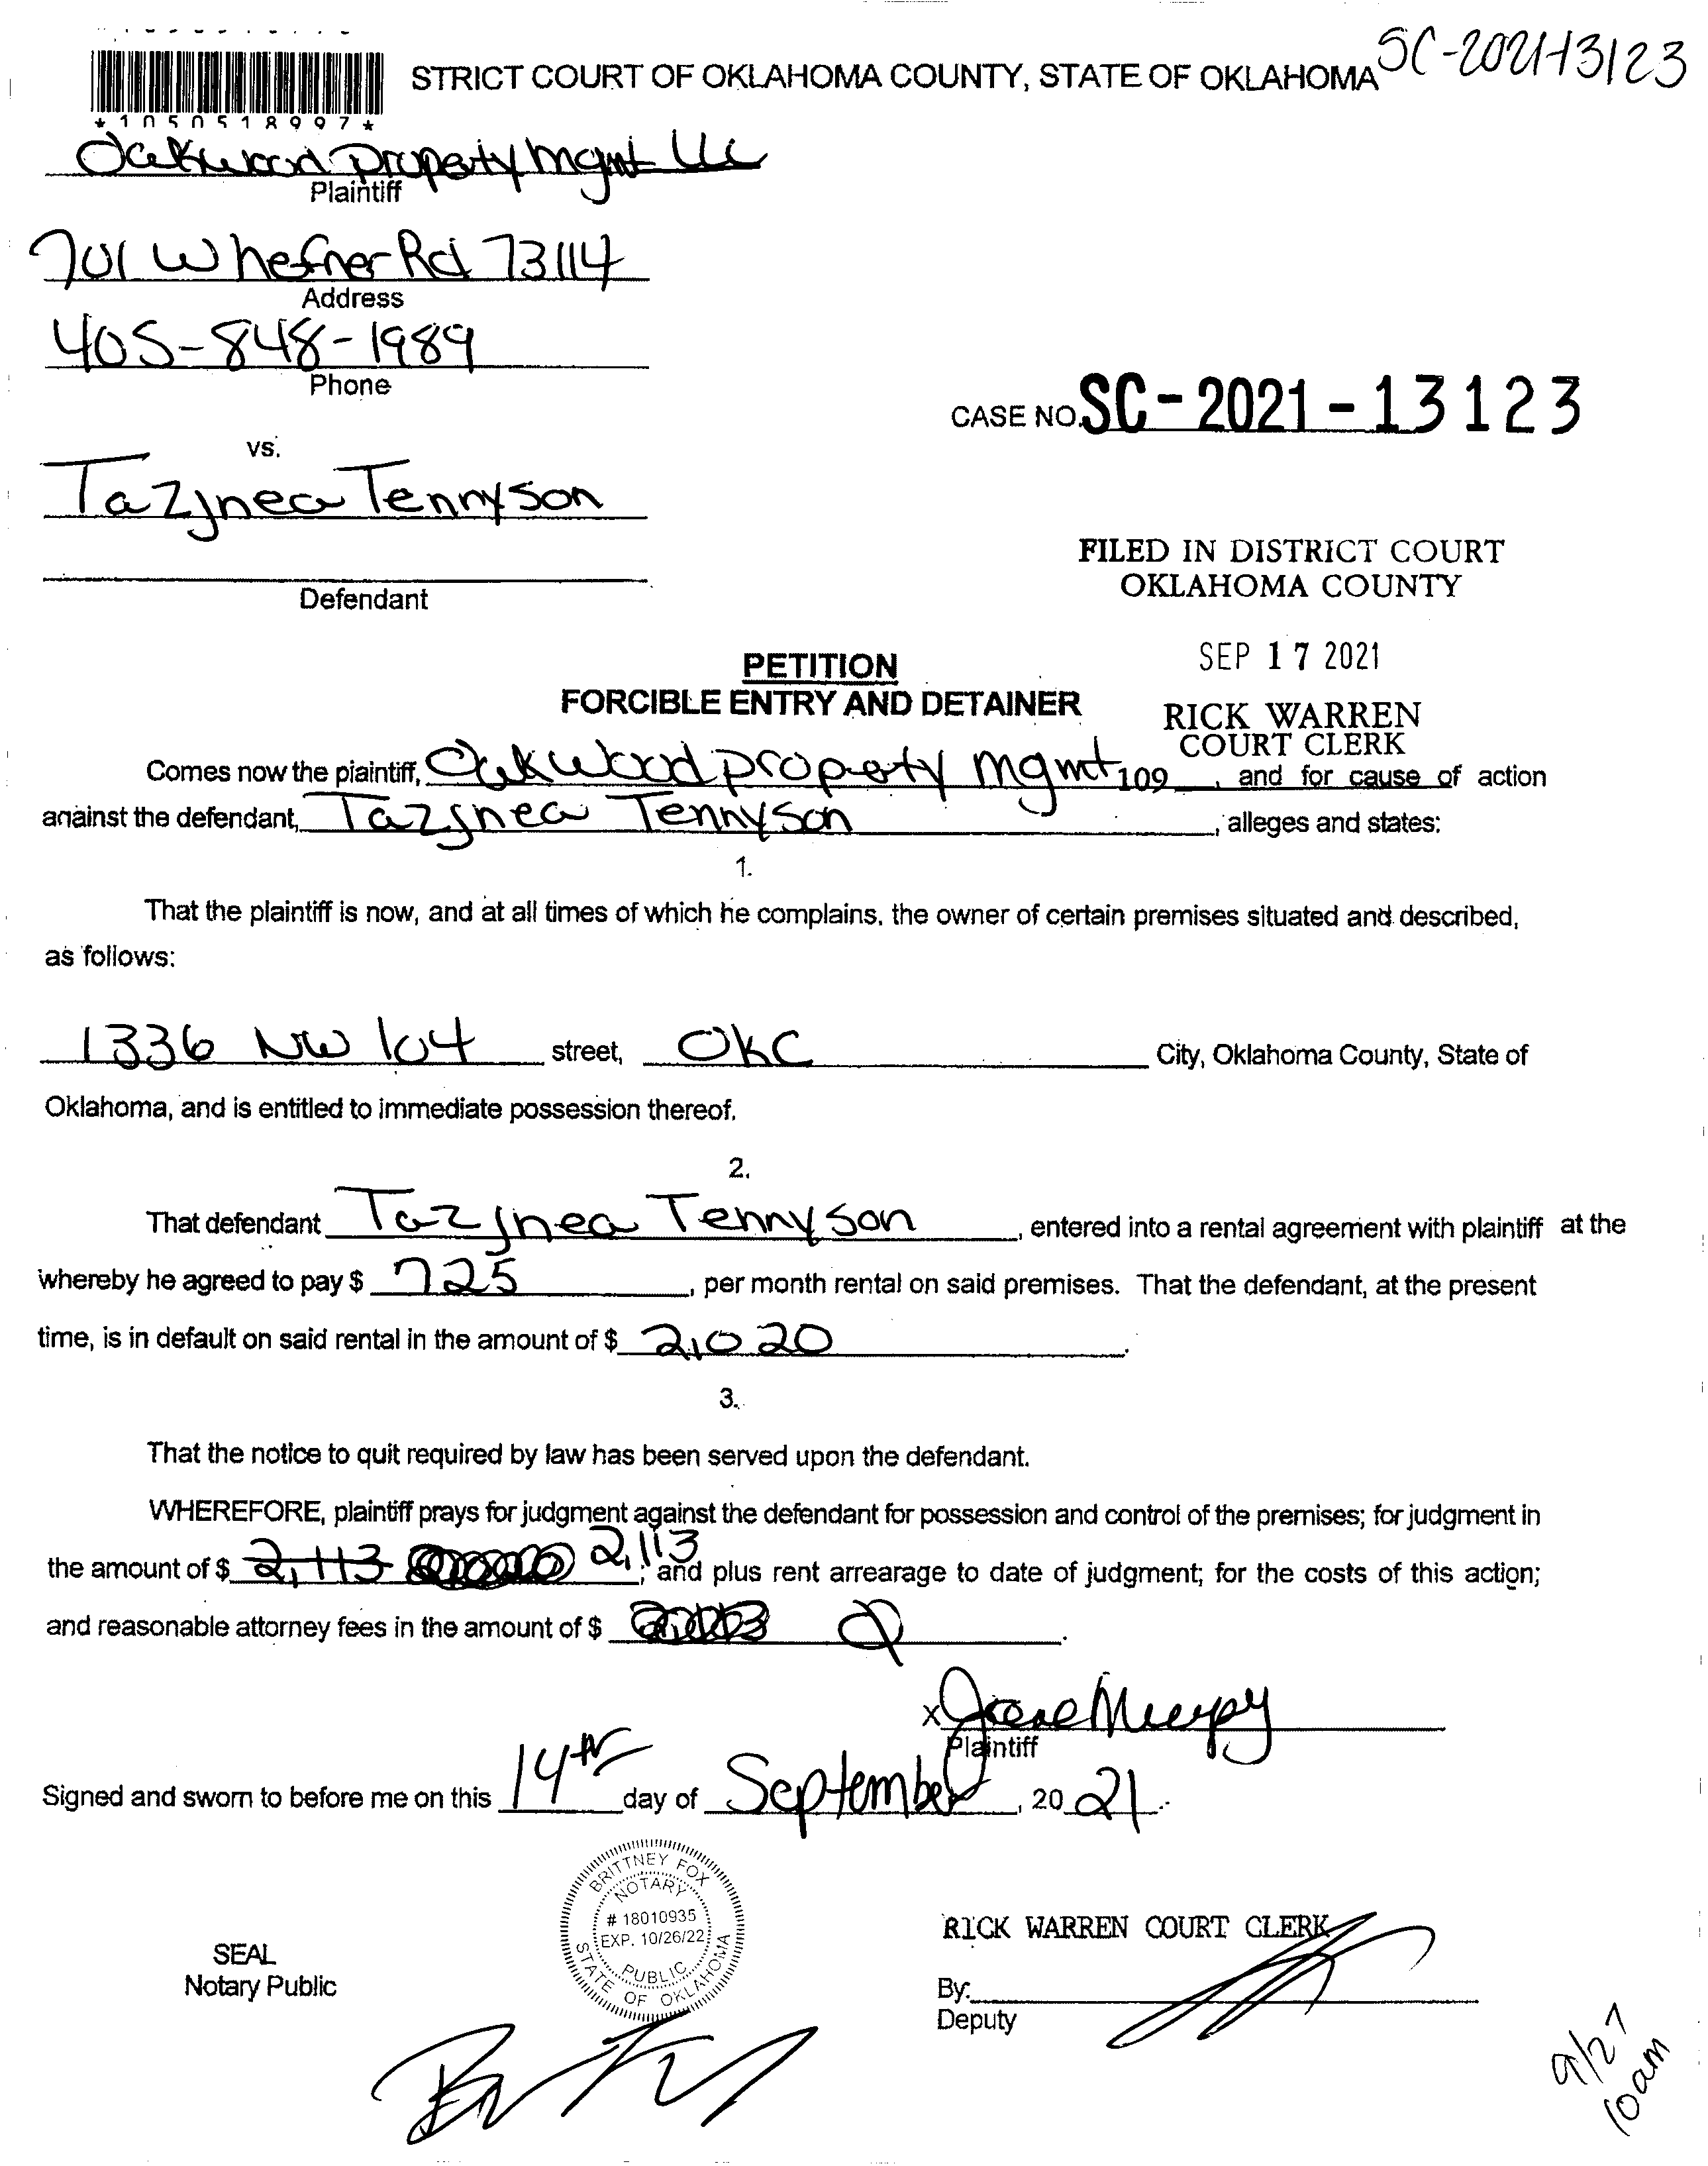 SC-2021-13123
STRICT COURT OF OKLAHOMA COUNTY, STATE OF OKLAHOMA
*1050518997*
Oakwood property mgmt LLC
Plaintiff
701 W hefner Rd 73114
Address
405-848-1989
Phone
CASE NO. SC-2021-13123
vs.
Tazjnea Tennyson
FILED IN DISTRICT COURT
OKLAHOMA COUNTY
Defendant
SEP 17 2021
PETITION
FORCIBLE ENTRY AND DETAINER
RICK WARREN
COURT CLERK
Comes now the plaintiff, Oakwood property mgmt 109, and for cause of action
against the defendant, Tazjnea Tennyson, alleges and states:
1.
That the plaintiff is now, and at all times of which he complains, the owner of certain premises situated and described,
as follows:
1336 NW 104 street, OKC City, Oklahoma County, State of
Oklahoma, and is entitled to immediate possession thereof.
2.
That defendant Tazjnea Tennyson, entered into a rental agreement with plaintiff at the
whereby he agreed to pay $ 725, per month rental on said premises. That the defendant, at the present
time, is in default on said rental in the amount of $ 2,020.
3.
That the notice to quit required by law has been served upon the defendant.
WHEREFORE, plaintiff prays for judgment against the defendant for possession and control of the premises; for judgment in
the amount of $ 2,113 2,113; and plus rent arrearage to date of judgment; for the costs of this action;
and reasonable attorney fees in the amount of $
x
Plaintiff
Signed and sworn to before me on this 14th day of September, 2021.
BRITTNEY FOX
NOTARY
# 18010935
EXP. 10/26/22
PUBLIC
STATE OF OKLAHOMA
SEAL
Notary Public
RICK WARREN COURT CLERK
By:
Deputy
9/27
10am